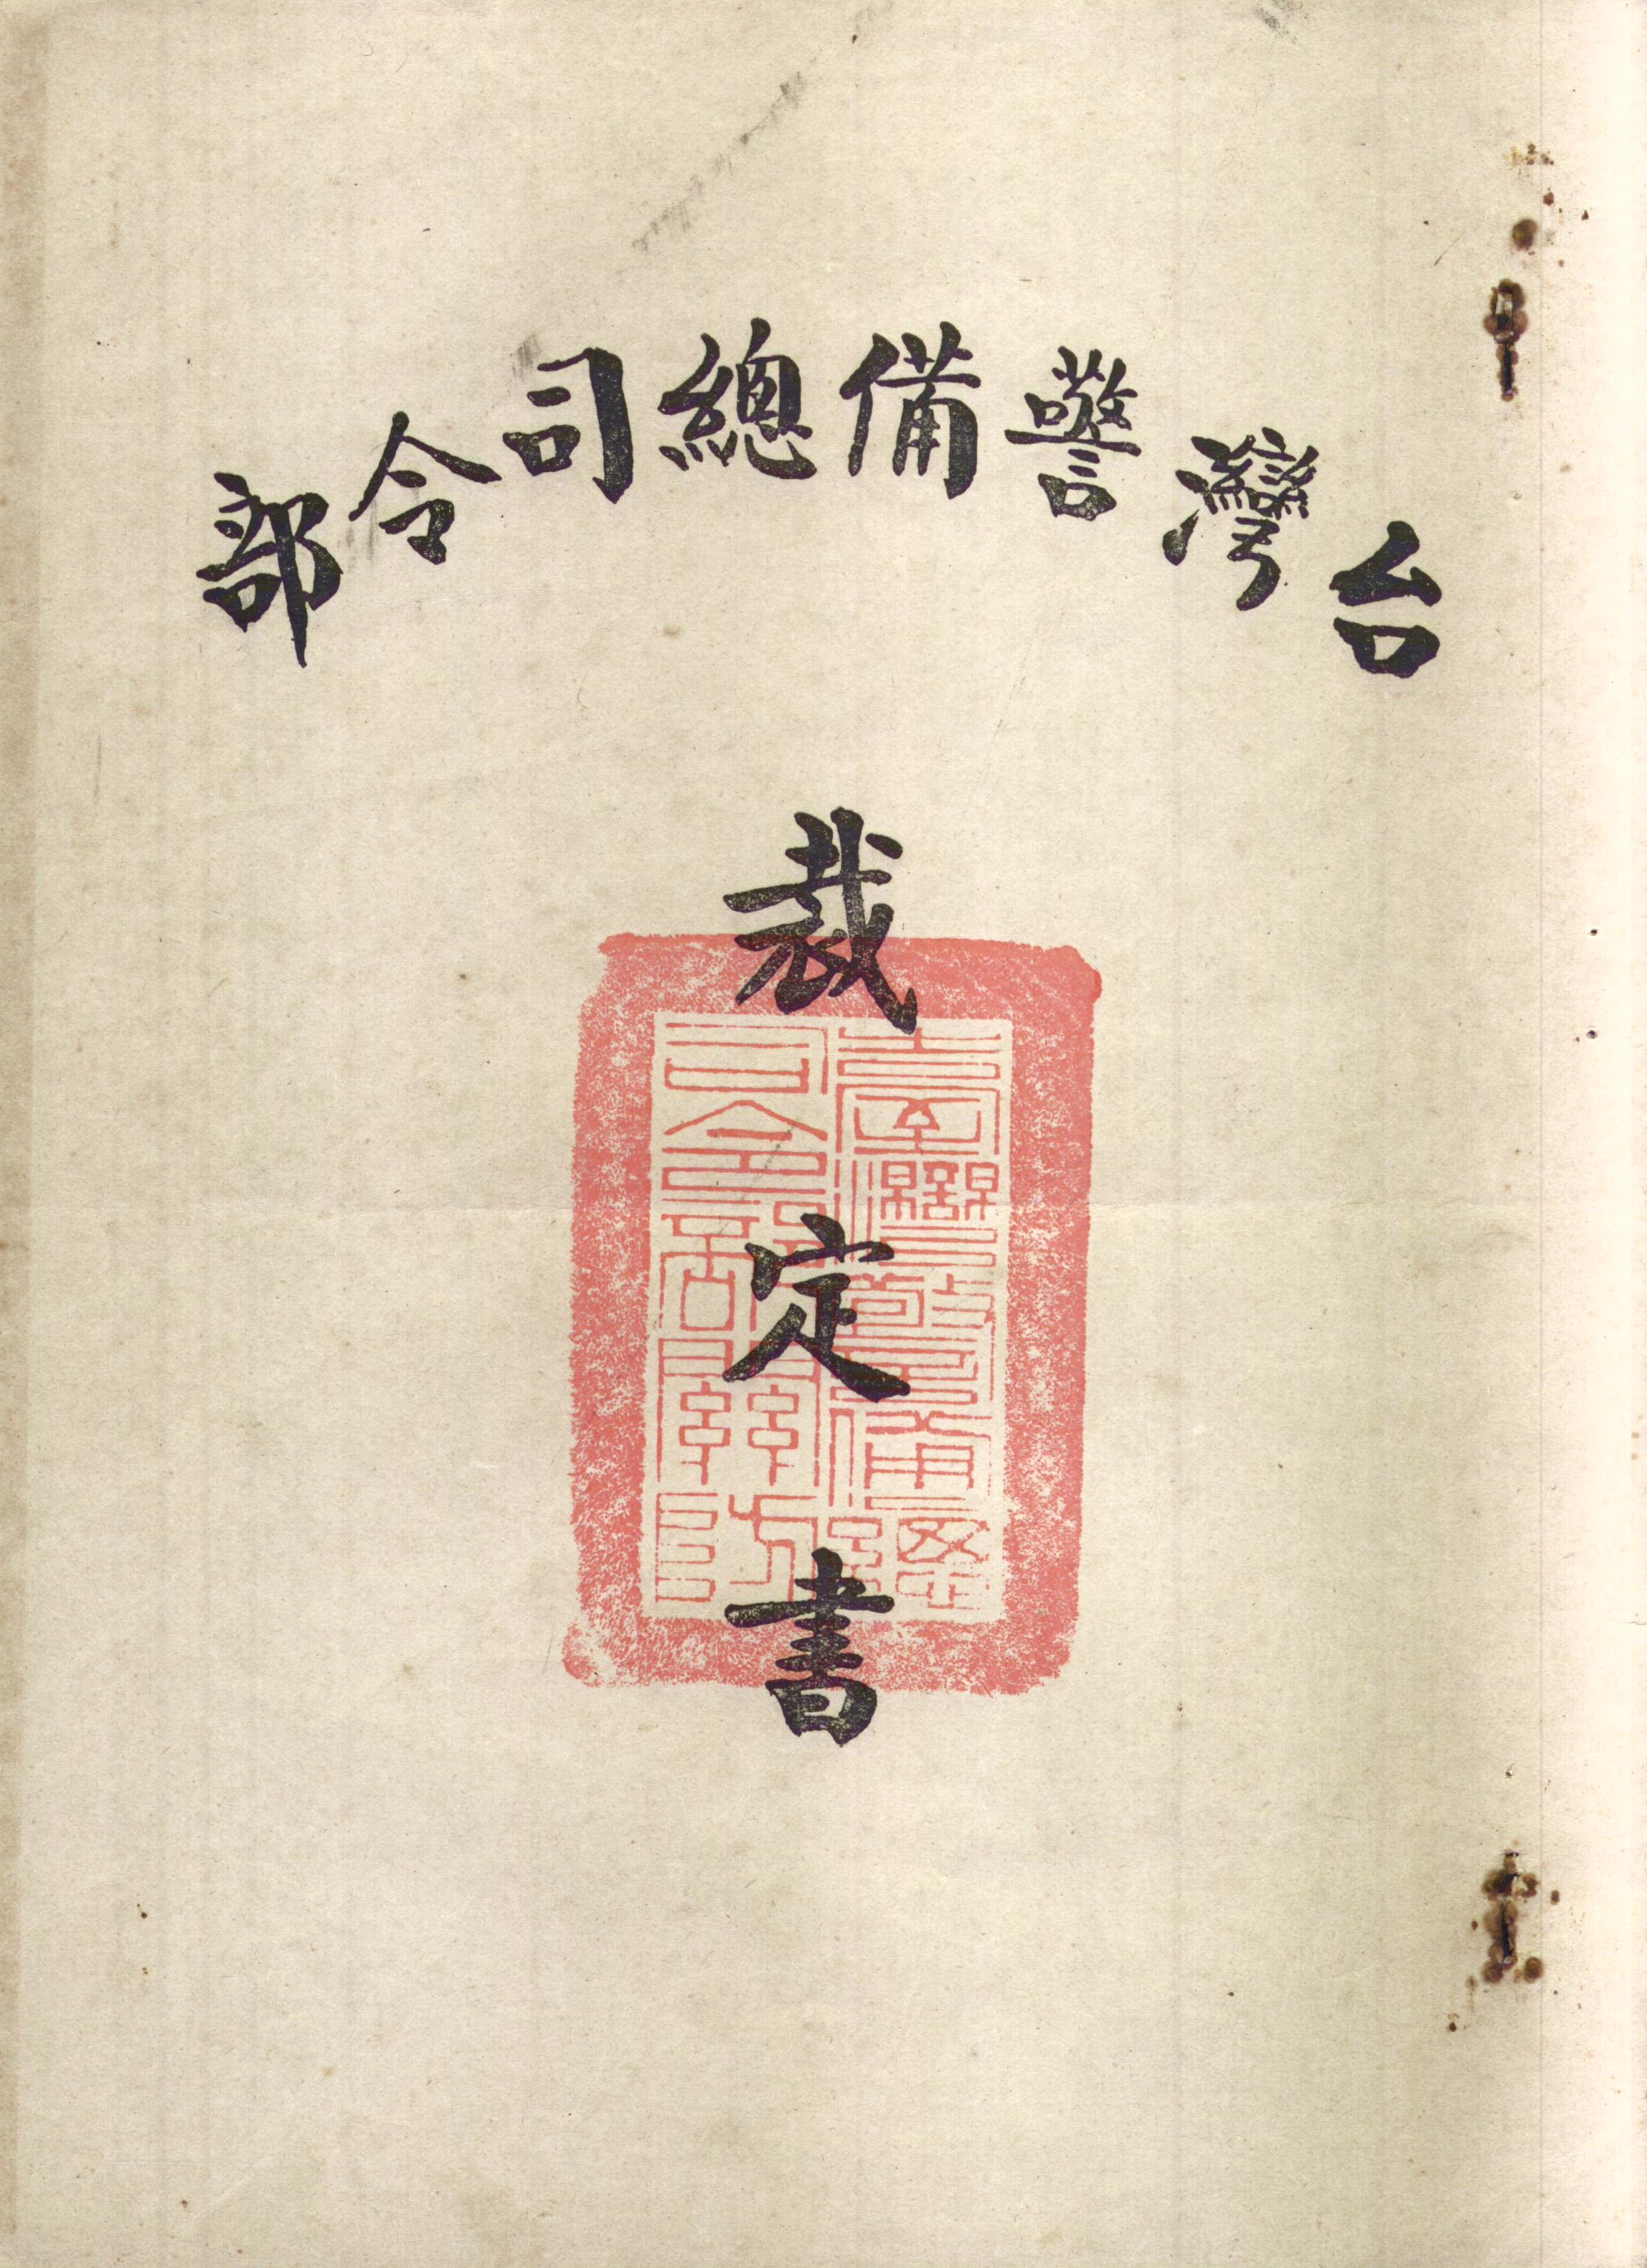 台灣警備總司令部
裁定書
臺灣警備總
司令部